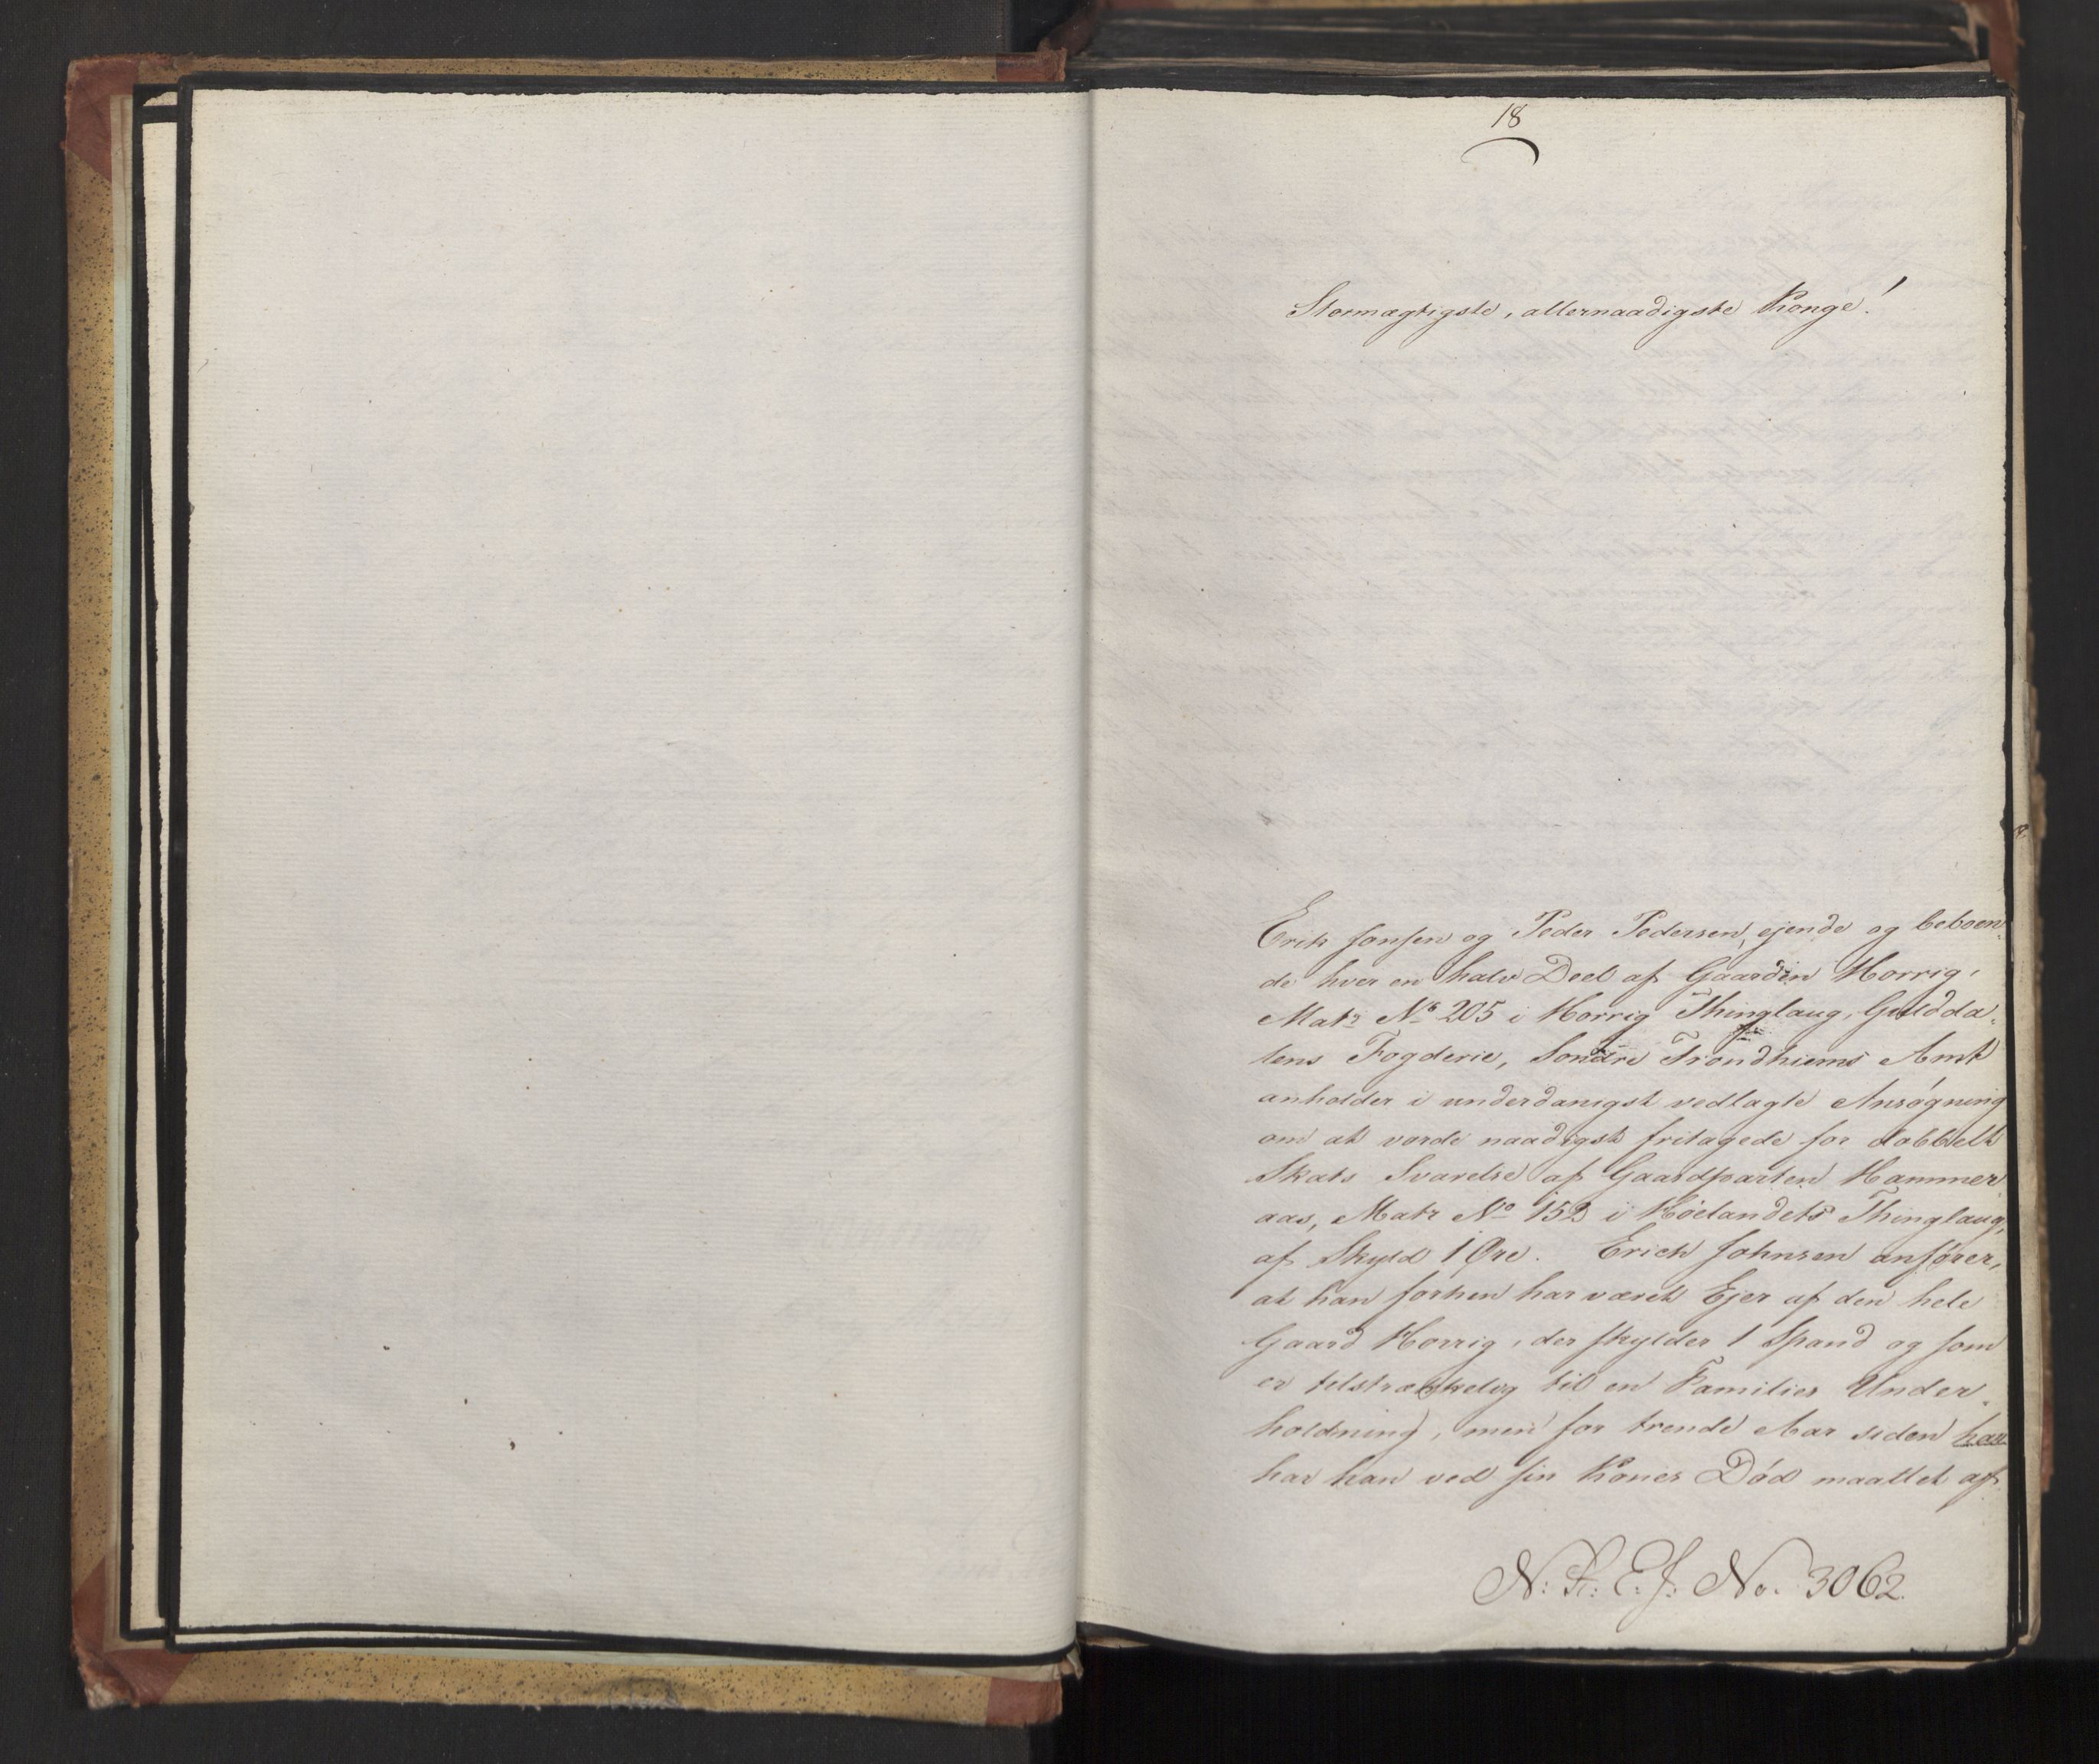 18
Stormægtigste, allernaadigste Konge!
Erik Jonsen og Peder Pedersen, ejende og beboen-
de hver en halv Deel af Gaarden Horrig,
Matr No 205 i Horrig Thinglaug, Guldda-
lens Fogderie, Sondre Trondhiems Amt
anholder i underdanigst vedlagte Ansøgning
om at vorde naadigst fritagede for dobbelt
Skats Svarelse af Gaardparten Hammer
aas, Matr No 152 i Høelandets Thinglaug,
af Skyld 1 Øre. Erich Johnsen anfører,
at han forhen har været Ejer af den hele
Gaard Horrig, der skylder 1 Spand og som
er tilstrækkelig til en Families Under-
holdning, men for trende Aar siden har
har han ved sin Kones Død maattet af
N: R: E: J: No. 3062.